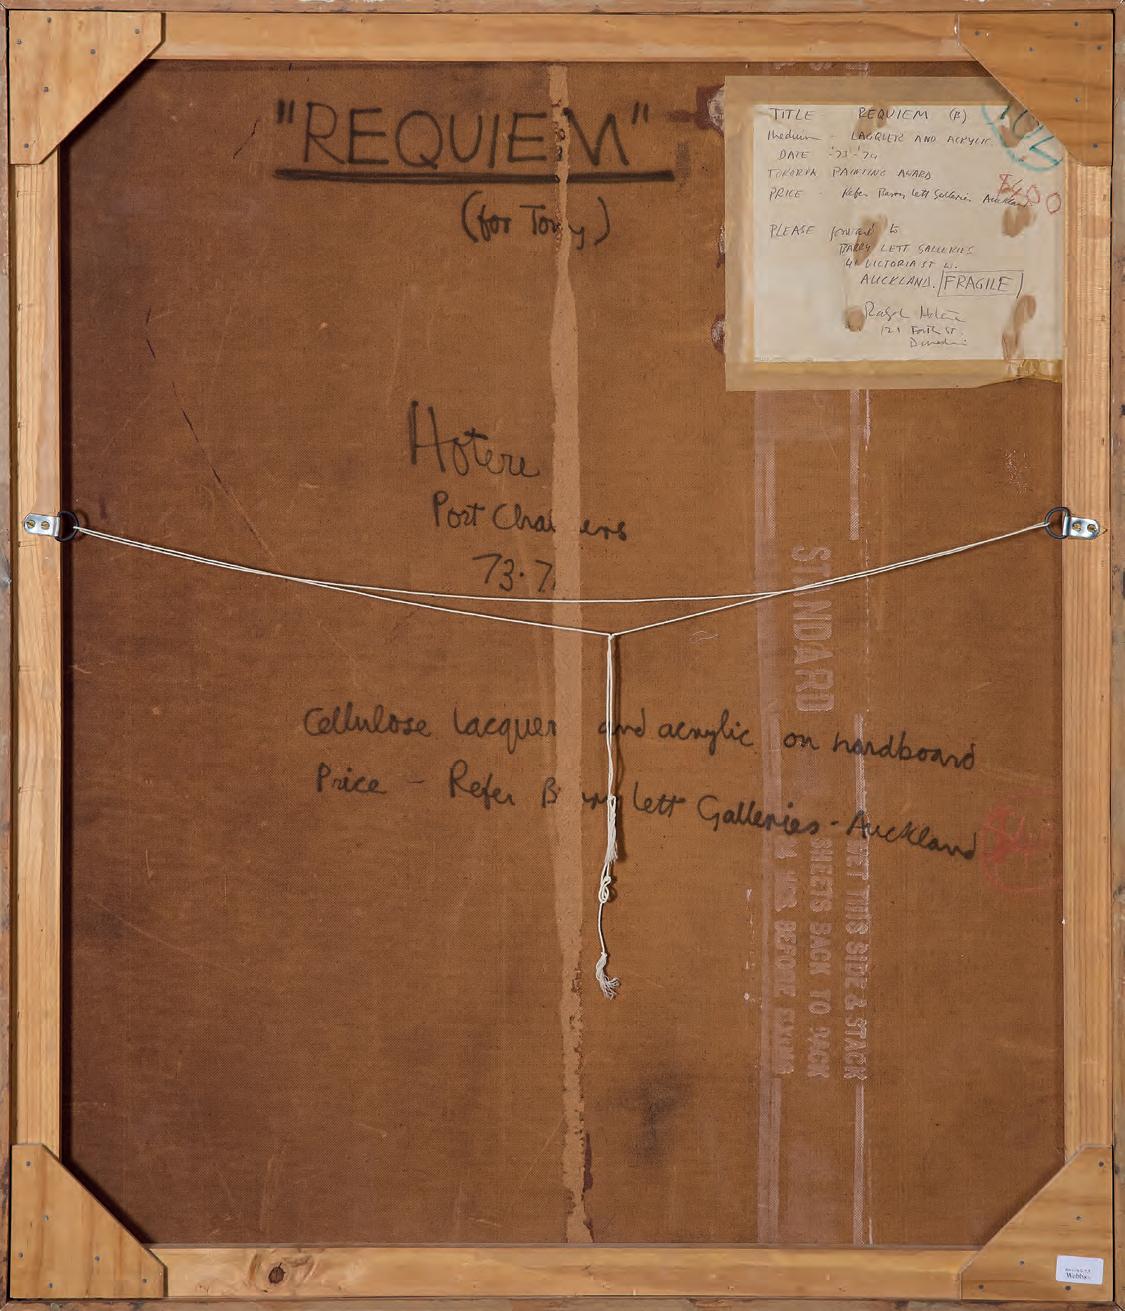 "REQUIEM"
(for Tony)
Hotere
Port Cha ers
73.7
Cellulose lacquer and acrylic on hardboard
Price - Refer B rry lett Galleries - Auckland
TITLE REQUIEM (B)
Medium - LACQUER AND ACRYLIC
DATE '73-'74
TOKOROA PAINTING AWARD
PRICE - Refer Barry Lett Galleries Auckland
$400
PLEASE forward to
BARRY LETT GALLERIES
41 VICTORIA ST W.
AUCKLAND. FRAGILE
Ralph Hotere
121 Forth St.
Dunedin
STANDARD
WET THIS SIDE & STACK
SHEETS BACK TO BACK
HRS BEFORE FIXING
$4
Webb's